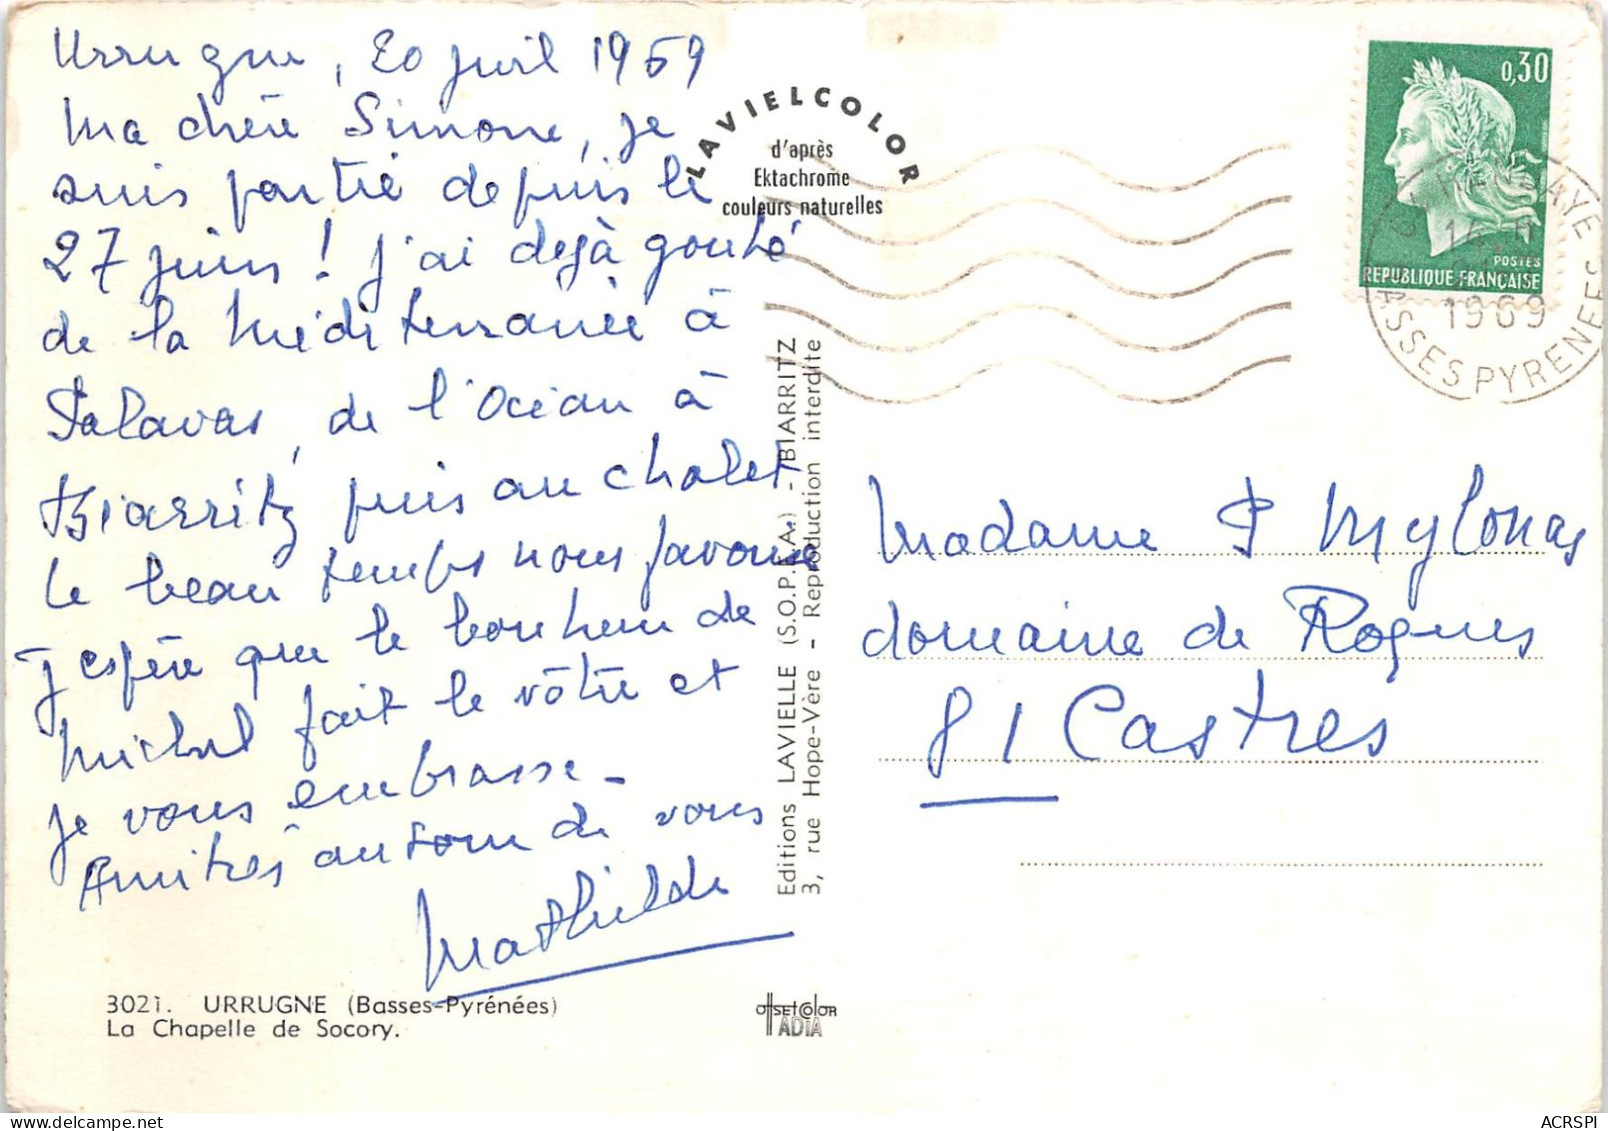 Urrugne, 20 juil 1969
Ma chère Simone, je
suis partie depuis le
27 juin ! j'ai dejà gouté
de la Méditerranée à
Palavas, de l'Océan à
Biarritz puis au chalet
le beau temps nous favorise
J'espère que le bonheur de
Michel fait le vôtre et
je vous embrasse -
Amitiés autour de vous
Mathilde
3021. URRUGNE (Basses-Pyrénées)
La Chapelle de Socory.
LAVIELCOLOR
d'après
Ektachrome
couleurs naturelles
Editions LAVIELLE (S.O.P.I.A.) - BIARRITZ
3, rue Hope-Vère - Reproduction interdite
OffSETCOlOR
ADIA
0,30
POSTES
REPUBLIQUE FRANÇAISE
1969
BASSES PYRENEES
Madame P Mylonas
domaine de Rognes
81 Castres
ACRSPI